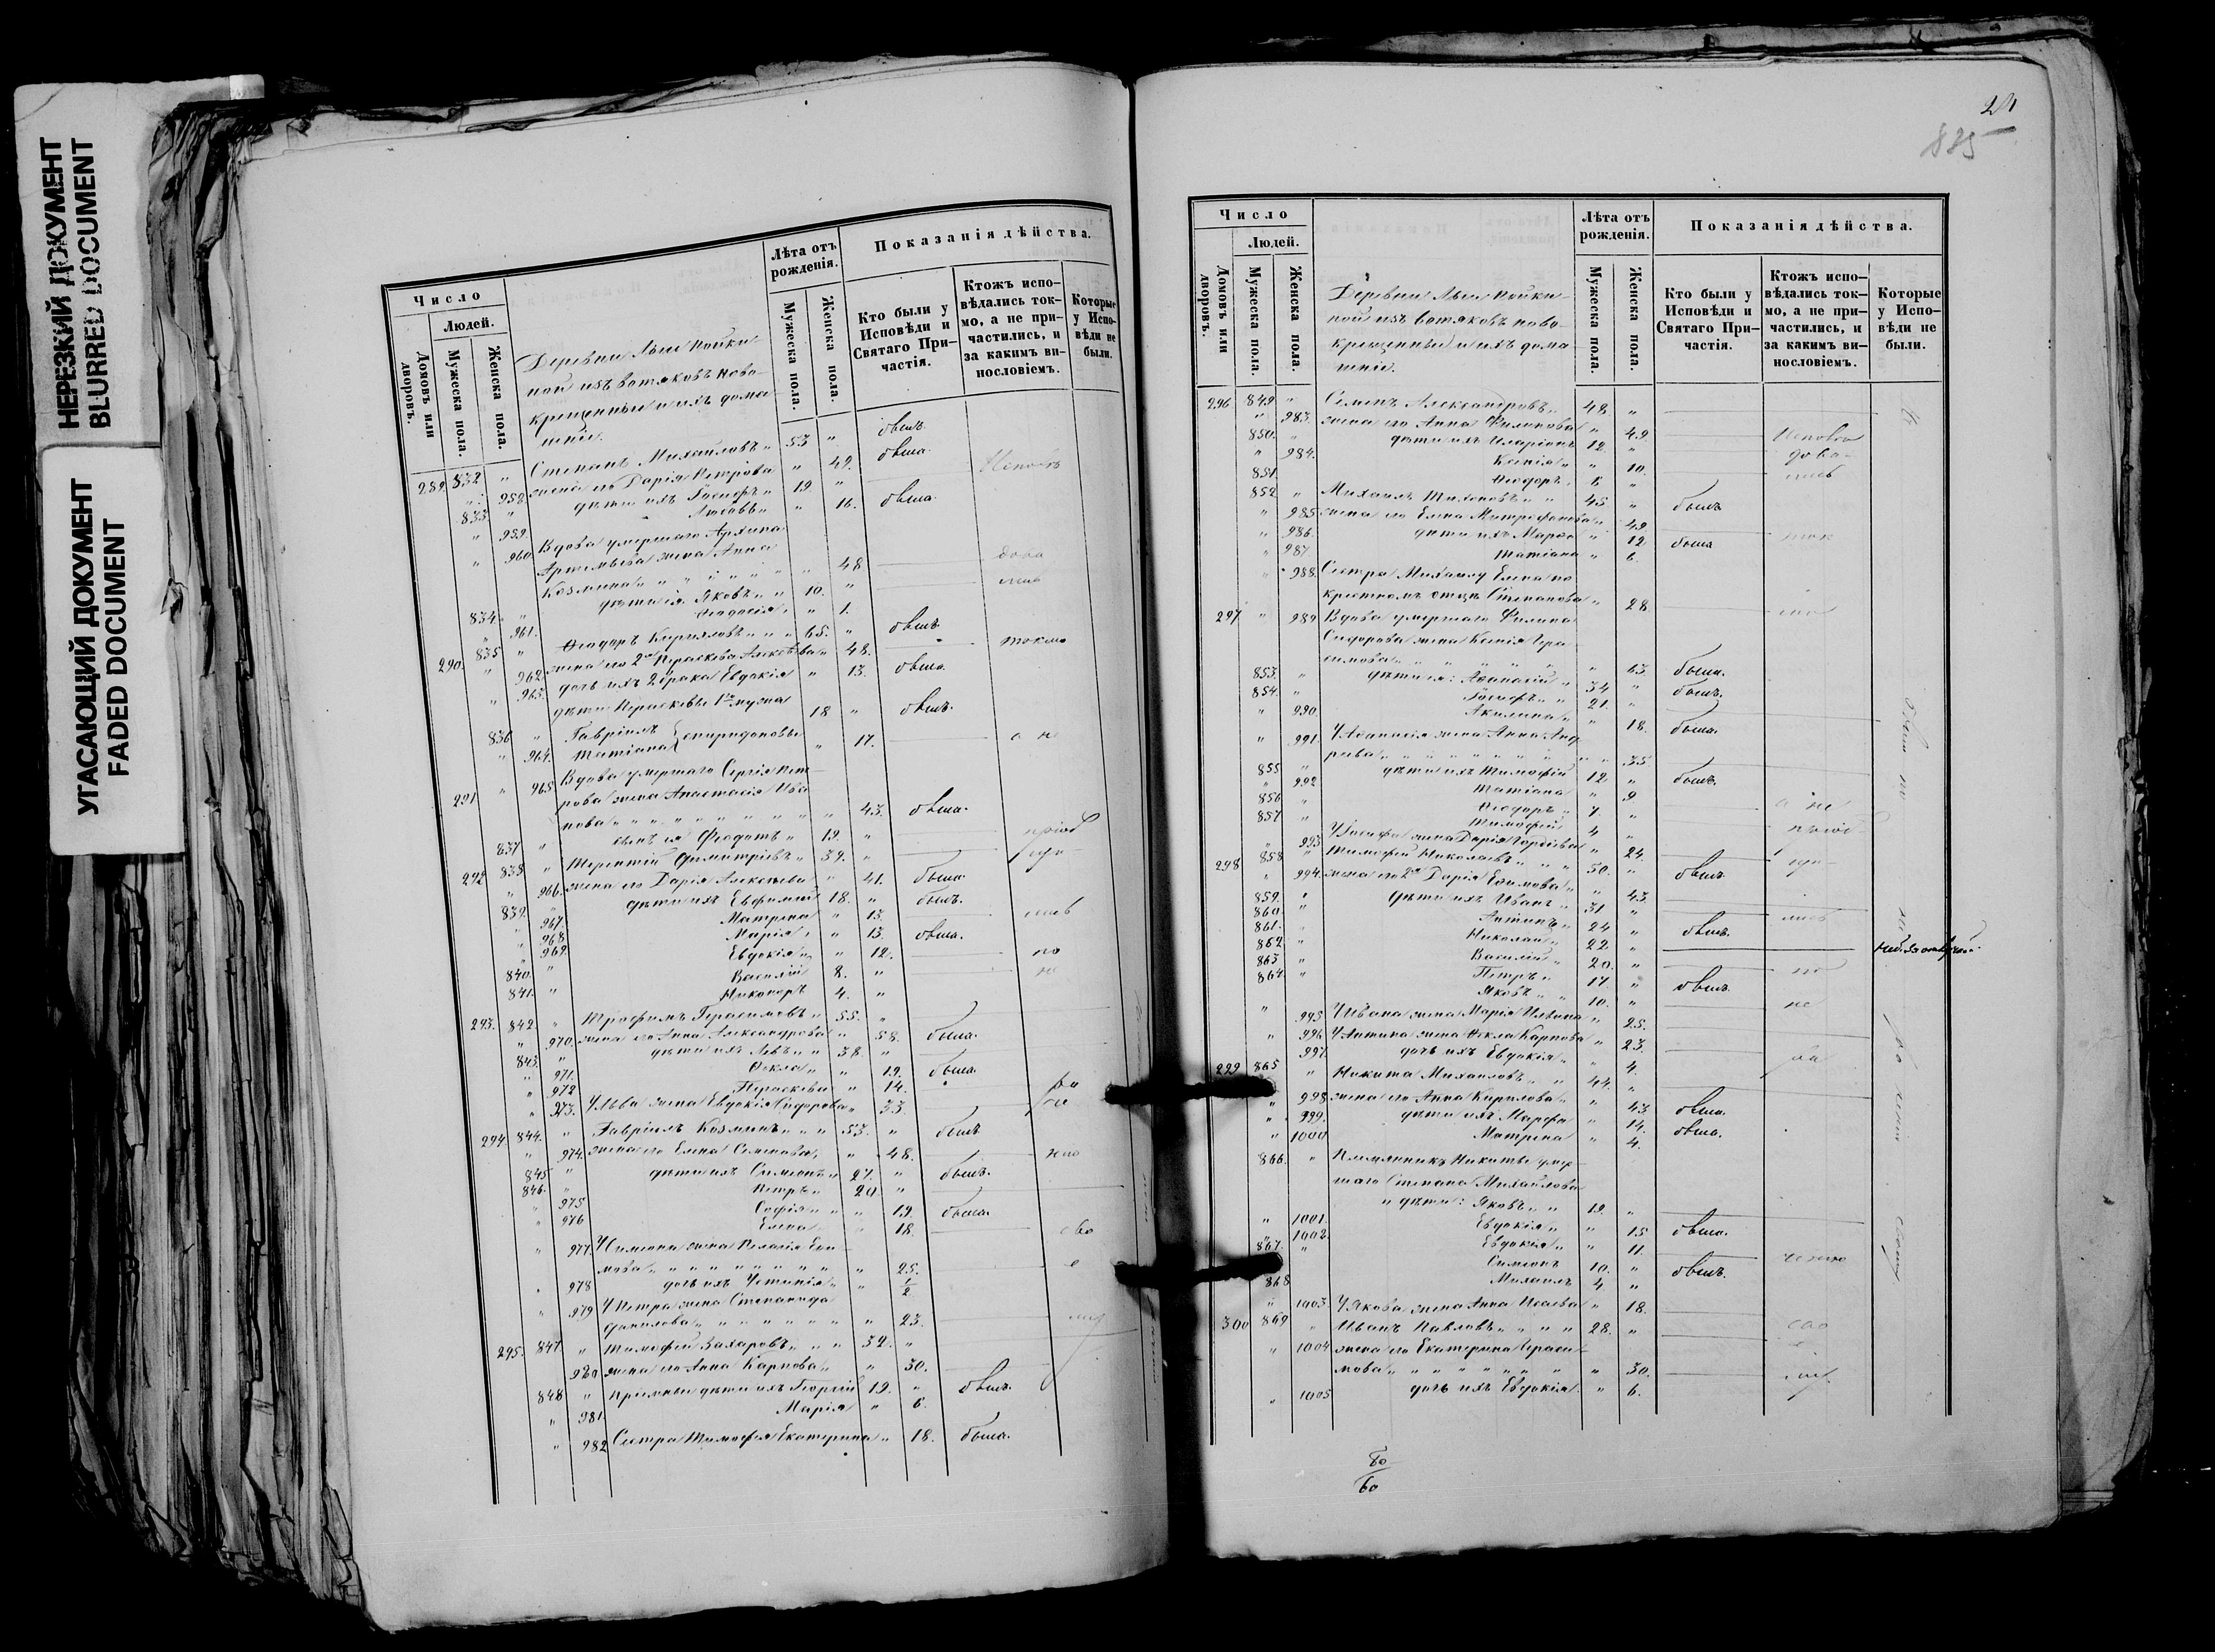 НЕРЕЗКИЙ ДОКУМЕНТ
BLURRED DOCUMENT
УГАСАЮЩИЙ ДОКУМЕНТ
FADED DOCUMENT
Число
Людей.
Домовъ или дворовъ.
Мужеска пола.
Женска пола.
Лѣта отъ рожденія.
Мужеска пола.
Женска пола.
Показанія дѣйства.
Кто были у Исповѣди и Святаго Причастія.
Ктожъ исповѣдались токмо, а не причастились, и за какимъ винословіемъ.
Которые у Исповѣди не были.
Деревни
изъ вотяковъ ново-
крещенные и ихъ дома-
шніе.
289 832 " Степанъ Михайловъ " 53 " былъ
" 958 жена его Дарія Петрова " 49. была.
833 " дѣти ихъ Іосифъ " 19 "
" 959. Любовь " " 16. была.
" 960 Вдова умершаго Архипа
Артемьева жена Анна
Козмина " " 48
834 " дѣти ея Яковъ " " 10. "
" 961. Ѳеодосія " " 1.
290. 835 " Ѳеодоръ Кирилловъ " " " 65. " былъ
" 962 жена его 2 Параскева Алексѣева " 48. токмо
" 963. дочь ихъ 2 брака Евдокія " 13. была.
дѣти Параскевы 1 мужа
836 " Гавріилъ 18 " былъ.
" 964. Татіана Спиридоновы " 17. а не
291 " 965. Вдова умершаго Сергія Пет-
рова жена Анастасія Ива-
нова " " 43. была.
837 " сынъ ея Феодотъ " 19. "
292 838 " Терентій Димитріевъ " 39. "
" 966. жена его Дарія Алексѣева " 41. была
839. " дѣти ихъ Евфимій 18. " былъ.
" 967. Матрена " 15.
" 968 Марія " " 13. была.
" 969. Евдокія " " 12. по
840. " Василій 8. " не
841. " Никоноръ 4. "
293. 842. " Трофимъ Герасимовъ " 55. "
" 970. жена его Анна Александрова " 58. была.
843. " дѣти ихъ Левъ " " 38. "
" 971. Ѳекла " " 19. была.
" 972 Параскева " 14.
" 973. У Льва жена Евдокія " 33.
294 844. " Гавріилъ Козминъ " " " 53. " былъ
" 974. жена его Елена Семенова " " 48.
845 " дѣти ихъ Симеонъ " 27. " былъ.
846. " Петръ " 20 "
" 975 Софія " " " 19. была.
" 976 Елена " " 18.
" 977. У Симеона жена Пелагія Ефи-
мова " " 25.
" 978 дочь ихъ Устинія " " 1/2
" 979 У Петра жена Степанида
Данилова " " 23.
295. 847. " Тимофей Захаровъ " " " 32. "
980 жена его Анна Карпова " " 30.
848 " пріемные дѣти ихъ Георгій 19. " былъ.
" 981. Марія " 6.
" 982 Сестра Тимофея Екатерина " 18. была.
885
Число
Людей.
Домовъ или дворовъ.
Мужеска пола.
Женска пола.
Лѣта отъ рожденія.
Мужеска пола.
Женска пола.
Показанія дѣйства.
Кто были у Исповѣди и Святаго Причастія.
Ктожъ исповѣдались токмо, а не причастились, и за какимъ винословіемъ.
Которые у Исповѣди не были.
Деревни
изъ вотяковъ ново-
крещенные и ихъ дома-
шніе.
296 849 " Семенъ Александровъ " 48. "
" 983. жена его Анна Филипова " 49.
850. " дѣти ихъ Иларіонъ 12. "
" 984. Ксенія " " 10.
851. Ѳеодоръ " 6 "
852 " Михаилъ Тихоновъ " " 45 " былъ
" 985 жена его Елена Митрофанова " 49
" 986. дѣти ихъ " 12 была
" 987. Татіана " 6.
" 988. Сестра Михаилу Елена по
крестномъ отцѣ Степанова " 28
297 " 989 Вдова умершаго Филипа
Сидорова жена Ксенія Гера-
симова " " 63 была.
853. " дѣти ея: Аѳанасій " 34 " былъ.
854. " Іосифъ " " 21. "
" 990. Акилина " " 18. была.
" 991. У Аѳанасія жена Анна Анд-
реева " " 35
855 " дѣти ихъ Тимофей 12. " былъ.
" 992 Татіана " 9
856 " Ѳеодоръ " 7. " а не
857 " Тимофей 4 "
" 993. У Іосифа жена Дарія Гордѣева " 24.
298 858 " Тимофей Николаевъ " " " 50. " былъ.
" 994. жена его 2 Дарія Ефимова " " 43.
859. " дѣти ихъ Иванъ " 31 "
860. " Антипъ " 24 " былъ.
861. " Николай " 22. "
862. " Василій " 20. "
863 " Петръ " 17 " былъ.
864. " Яковъ " " 10. "
" 995 У Ивана жена Марія " 25.
" 996 У Антипа жена Ѳекла Карпова " 23.
997. дочь ихъ Евдокія " " 4.
299 865 " Никита Михаиловъ " " 44. "
" 998 жена его Анна Кирилова " " 43. была.
" 999. дѣти ихъ Марфа " 14. была.
" 1000 Матрена " 4.
866. " Племянникъ Никиты умер-
шаго Степана Михайлова
дѣти: Яковъ " " 19. "
" 1001. Евдокія " " 15 была.
" 1002. Евдокія " " 11.
867. " Симеонъ 10. " былъ.
868 Михаилъ 4 "
" 1003. У Якова жена Анна Исаева " 18.
300 869 " Иванъ Павловъ " " " " 28. "
" 1004 жена его Екатерина Гераси-
мова " " 30.
" 1005 дочь ихъ Евдокія " 6.
80
60